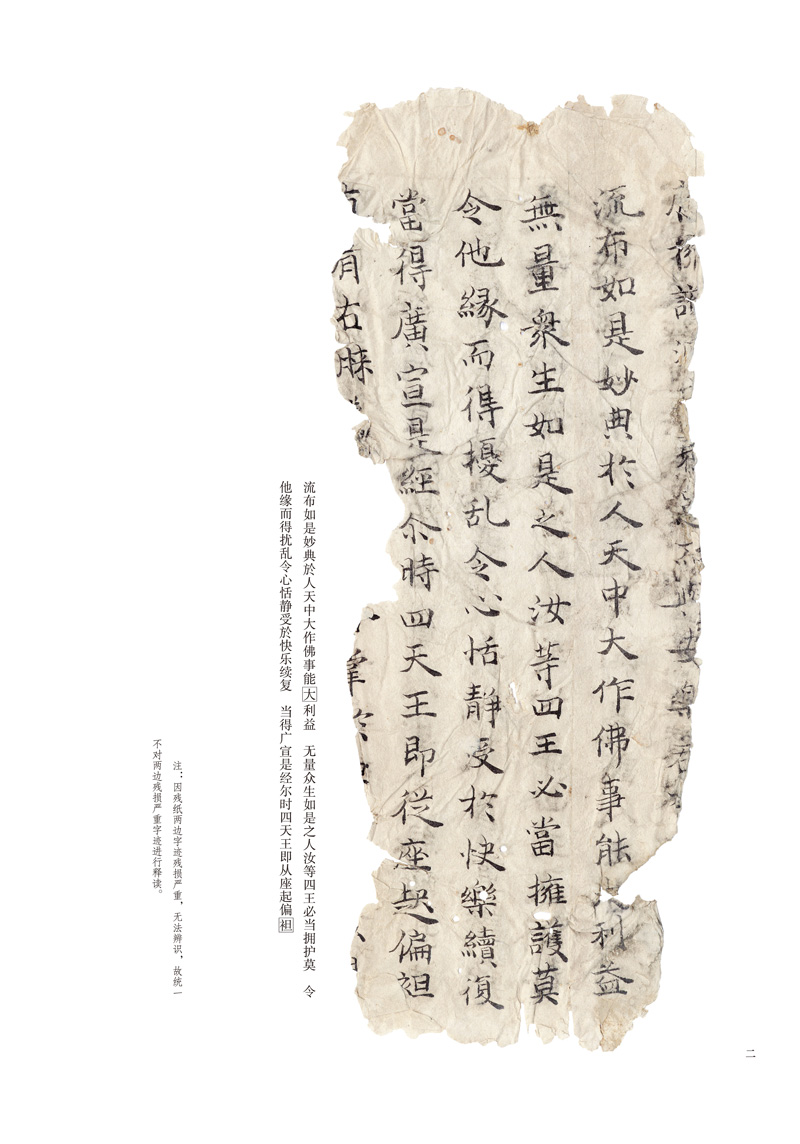 流布如是妙典於人天中大作佛事能大利益
無量衆生如是之人汝等四王必當擁護莫
令他緣而得擾乱令心恬静受於快樂續復
當得廣宣是經尒時四天王即從座起偏袒
有右膝
流布如是妙典於人天中大作佛事能大利益　无量众生如是之人汝等四王必当拥护莫　令
他缘而得扰乱令心恬静受於快乐续复　当得广宣是经尔时四天王即从座起偏袒
注：因残纸两边字迹残损严重，无法辨识，故统一
不对两边残损严重字迹进行释读。
二